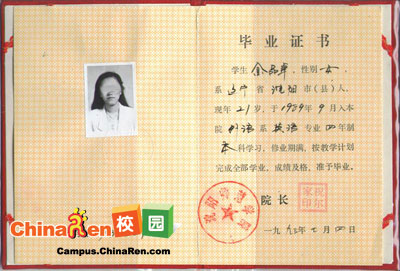 毕业证书
学生 金 ，性别 女，
系 辽宁 省 沈阳 市（县）人，
现年 21 岁，于 1989 年 9 月入本
院 外语 系 英语 专业 四 年制
本 科学习，修业期满，按教学计划
完成全部学业，成绩及格，准予毕业。
院长
一九 年 七 月 四 日
ChinaRen 校园
Campus.ChinaRen.com